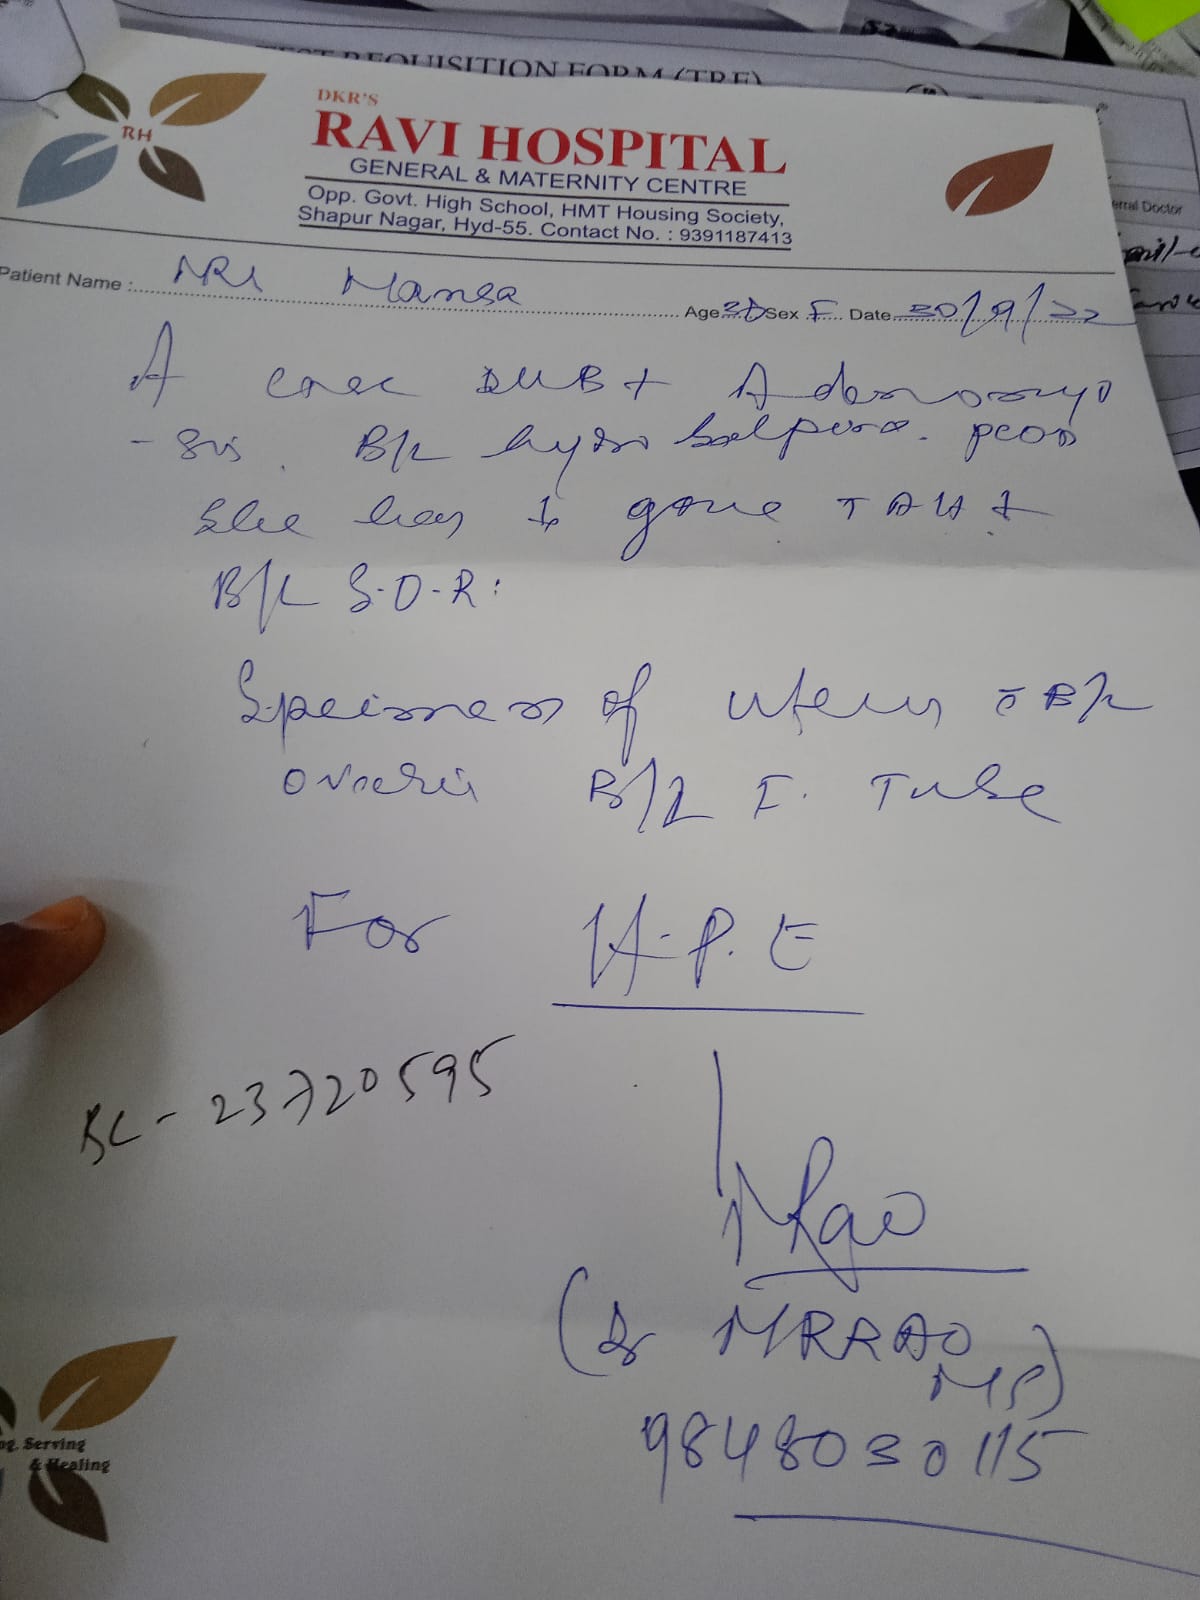 TEST REQUISITION FORM (TRF)
RH
DKR'S
RAVI HOSPITAL
GENERAL & MATERNITY CENTRE
Opp. Govt. High School, HMT Housing Society,
Shapur Nagar, Hyd-55. Contact No. : 9391187413
erral Doctor
Patient Name : Mansa
Age Sex F Date 30/9/22
A case DUB + Adenomyo
-sis. B/L hydro salpinx. PCOD
She has gone TAH +
B/L S-O-R:
Specimen of uterus c̄ B/L
ovaries B/L F. Tube
For H.P.E
BC-23720595
MRao
(Dr MRRAO
MS)
9848030115
ng, Serving
& Healing